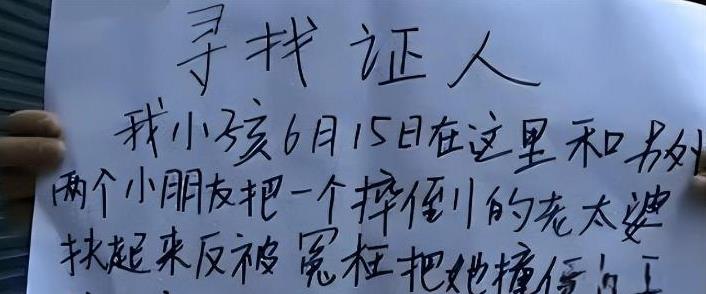 寻找证人
我小孩6月15日在这里和另外
两个小朋友把一个摔倒的老太婆
扶起来反被冤枉把她撞伤